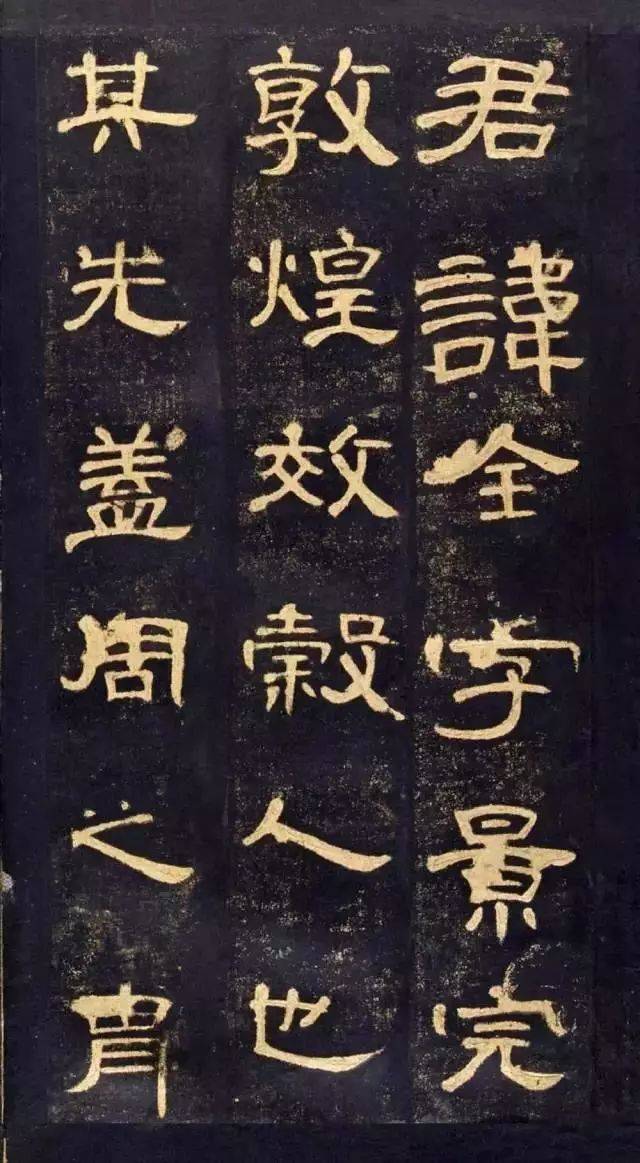 君諱全字景完
敦煌效穀人也
其先蓋周之胄